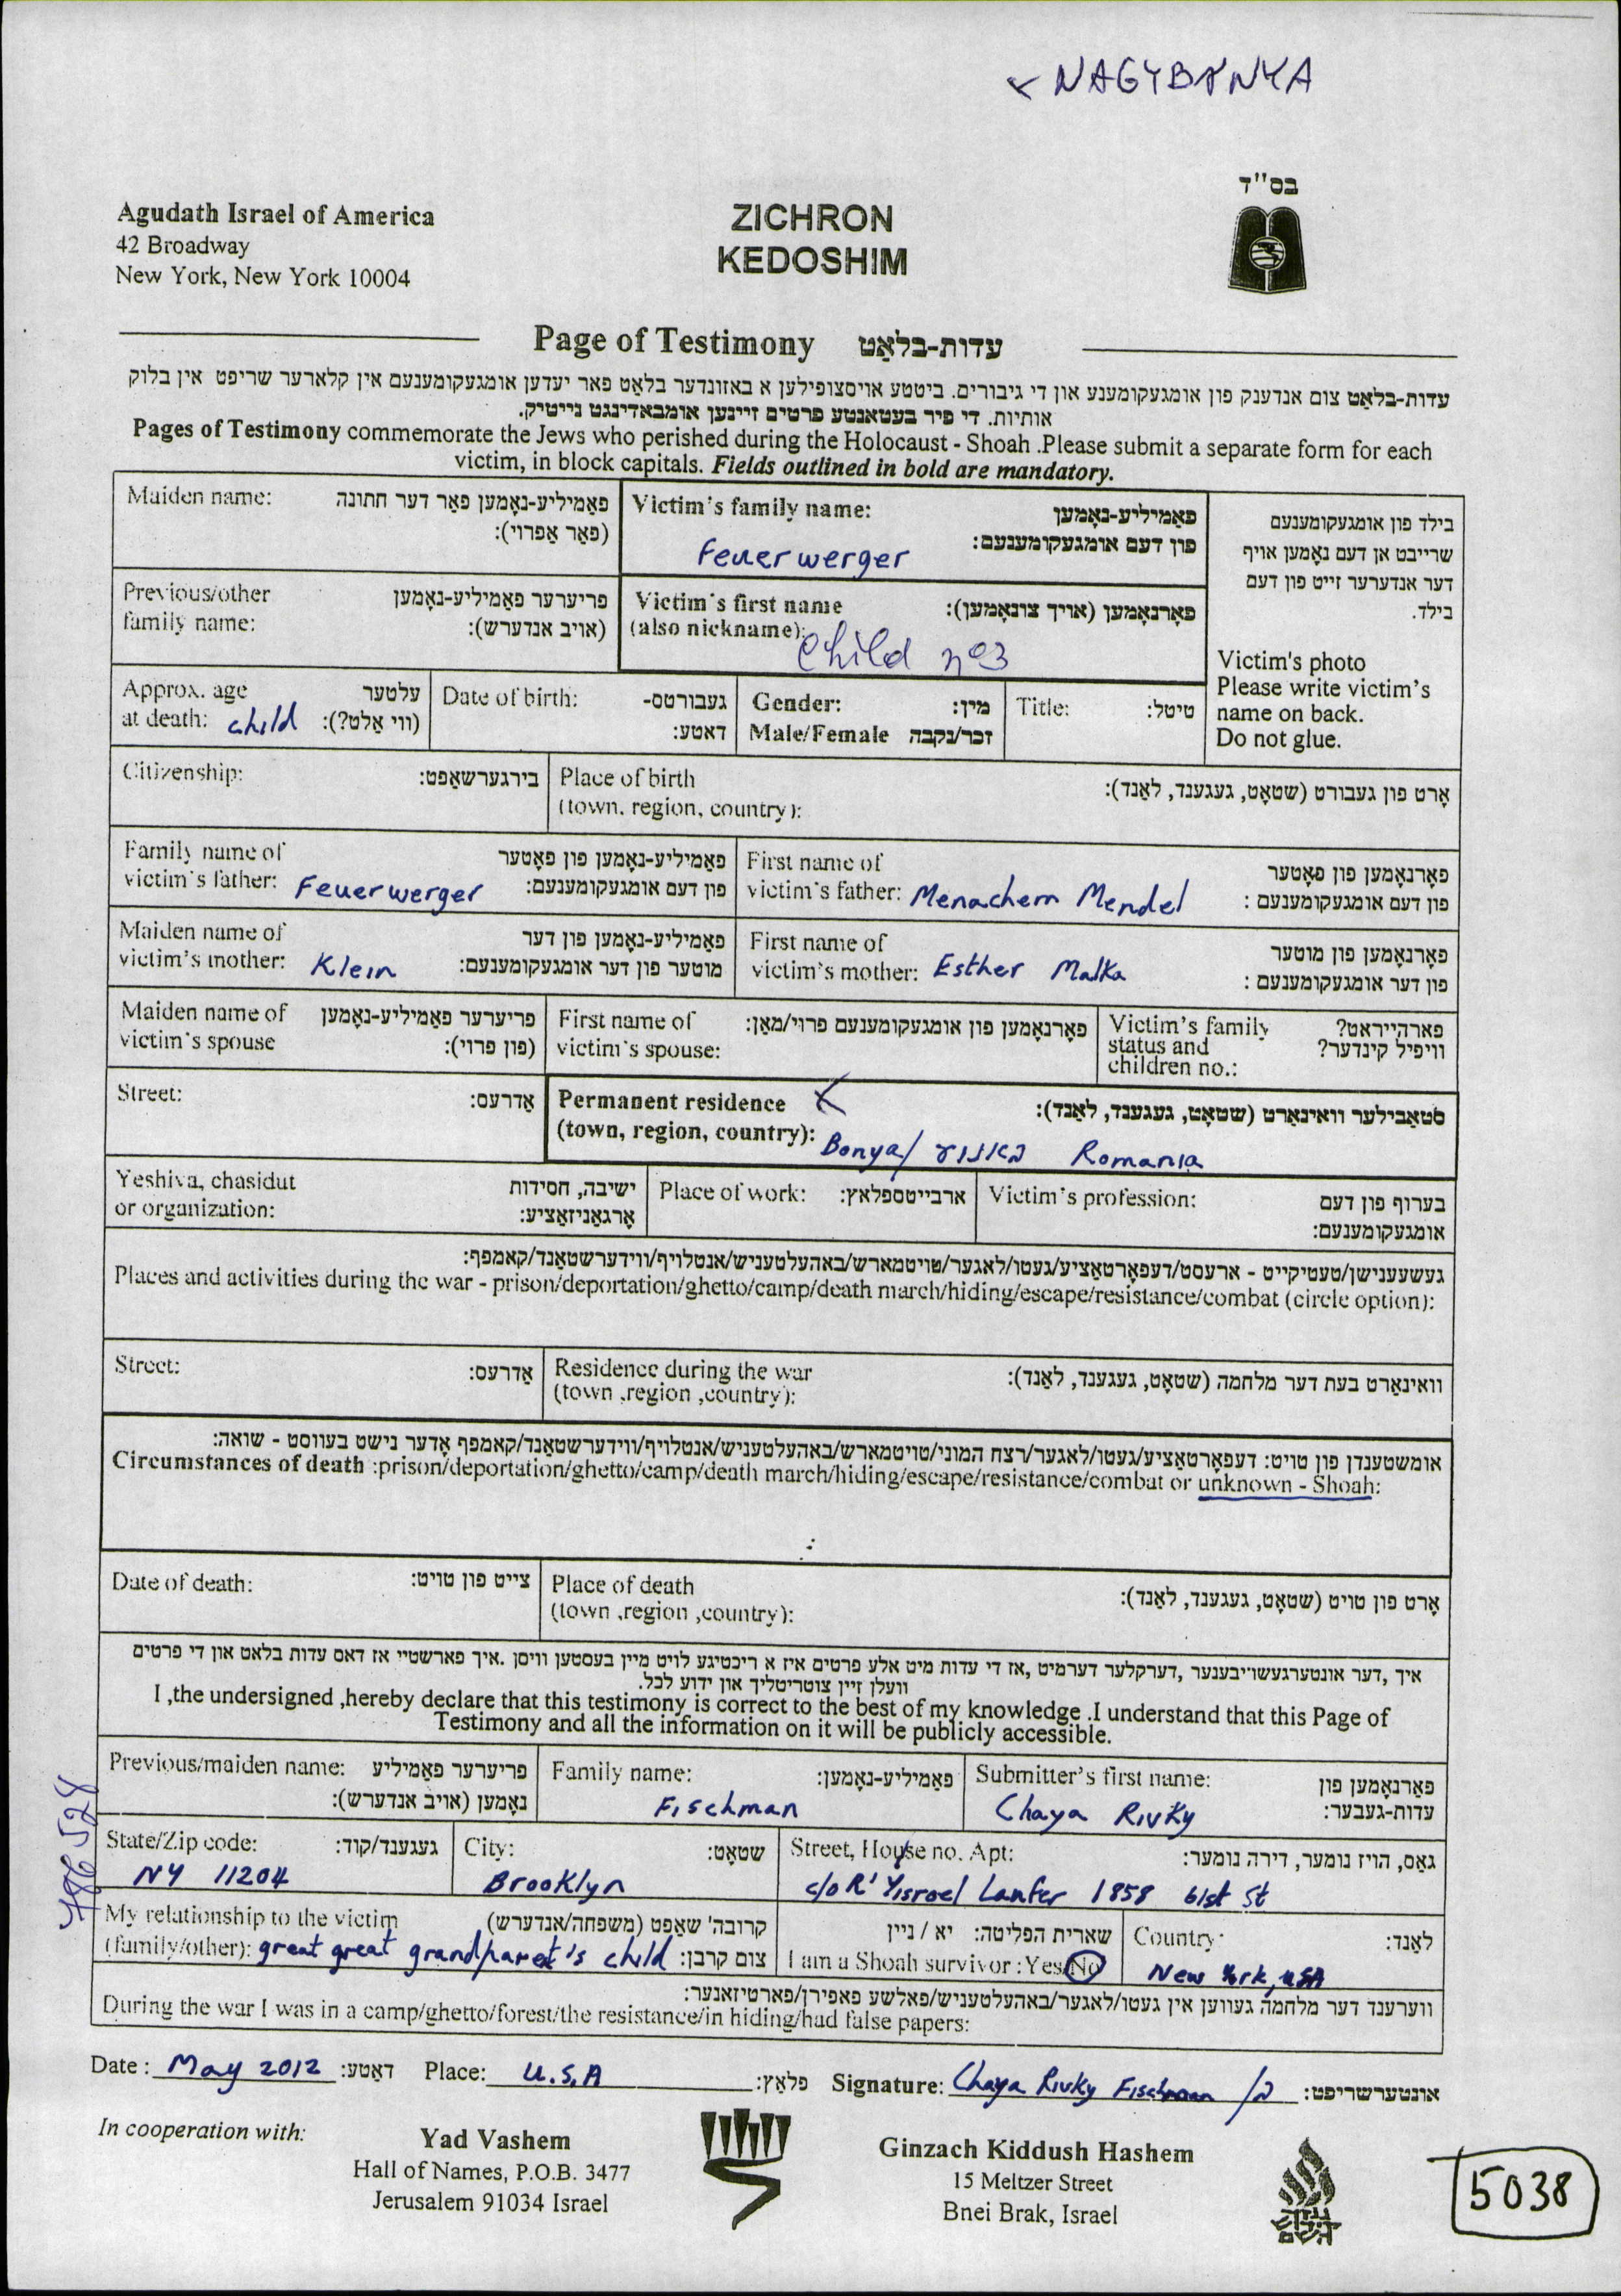 < NAGYBANYA
בס"ד
Agudath Israel of America
42 Broadway
New York, New York 10004
ZICHRON
KEDOSHIM
Page of Testimony עדות-בלאַט
עדות-בלאַט צום אנדענק פון אומגעקומענע און די גיבורים. ביטטע אויסצופילען א באזונדער בלאַט פאר יעדען אומגעקומענעם אין קלארער שריפט אין בלוק
אותיות. די פיר בעטאנטע פרטים זיינען אומבאדינגט נייטיק.
Pages of Testimony commemorate the Jews who perished during the Holocaust - Shoah .Please submit a separate form for each
victim, in block capitals. Fields outlined in bold are mandatory.
Maiden name: פאַמיליע-נאָמען פאַר דער חתונה
(פאַר אַפרוי):
Victim's family name: פאַמיליע-נאָמען
פון דעם אומגעקומענעם:
Feuerwerger
בילד פון אומגעקומענעם
שרייבט אן דעם נאָמען אויף
דער אנדערער זייט פון דעם
בילד.
Victim's photo
Please write victim's
name on back.
Do not glue.
Previous/other פריערער פאַמיליע-נאָמען
family name: (אויב אנדערש):
Victim's first name פאָרנאָמען (אויך צונאָמען):
(also nickname):
Child nº3
Approx. age עלטער
at death: child (ווי אַלט?):
Date of birth: געבורטס-
דאטע:
Gender: מין:
Male/Female זכר/נקבה
Title: טיטל:
Citizenship: בירגערשאַפט:
Place of birth אָרט פון געבורט (שטאָט, געגענד, לאַנד):
(town, region, country):
Family name of פאַמיליע-נאָמען פון פאָטער
victim's father: Feuerwerger פון דעם אומגעקומענעם:
First name of פאָרנאָמען פון פאָטער
victim's father: Menachem Mendel פון דעם אומגעקומענעם :
Maiden name of פאַמיליע-נאָמען פון דער
victim's mother: Klein מוטער פון דער אומגעקומענעם:
First name of פאָרנאָמען פון מוטער
victim's mother: Esther Malka פון דער אומגעקומענעם :
Maiden name of פריערער פאַמיליע-נאָמען
victim's spouse (פון פרוי):
First name of פאָרנאָמען פון אומגעקומענעם פרוי/מאַן:
victim's spouse:
Victim's family פארהייראט?
status and וויפיל קינדער?
children no.:
Street: אַדרעס:
Permanent residence < סטאַבילער וואינאַרט (שטאָט, געגענד, לאַנד):
(town, region, country): Bonya/ באנוע Romania
Yeshiva, chasidut ישיבה, חסידות
or organization: אָרגאַניזאַציע:
Place of work: ארבייטספלאץ:
Victim's profession: בערוף פון דעם
אומגעקומענעם:
געשעענישן/טעטיקייט - ארעסט/דעפאָרטאַציע/געטו/לאגער/טויטמארש/באהעלטעניש/אנטלויף/ווידערשטאַנד/קאמפף:
Places and activities during the war - prison/deportation/ghetto/camp/death march/hiding/escape/resistance/combat (circle option):
Street: אַדרעס:
Residence during the war וואינאַרט בעת דער מלחמה (שטאָט, געגענד, לאַנד):
(town ,region ,country):
אומשטענדן פון טויט: דעפאָרטאַציע/געטו/לאגער/רצח המוני/טויטמארש/באהעלטעניש/אנטלויף/ווידערשטאַנד/קאמפף אָדער נישט בעוווסט - שואה:
Circumstances of death :prison/deportation/ghetto/camp/death march/hiding/escape/resistance/combat or unknown - Shoah:
Date of death: צייט פון טויט:
Place of death אָרט פון טויט (שטאָט, געגענד, לאַנד):
(town ,region ,country):
איך ,דער אונטערגעשריבענער ,דערקלער דערמיט ,אז די עדות מיט אלע פרטים איז א ריכטיגע לויט מיין בעסטען וויסן .איך פארשטיי אז דאס עדות בלאט און די פרטים
וועלן זיין צוטריטליך און ידוע לכל.
I ,the undersigned ,hereby declare that this testimony is correct to the best of my knowledge .I understand that this Page of
Testimony and all the information on it will be publicly accessible.
Previous/maiden name: פריערער פאַמיליע
נאָמען (אויב אנדערש):
Family name: פאַמיליע-נאָמען:
Fischman
Submitter's first name: פאַרנאָמען פון
עדות-געבער:
Chaya Rivky
State/Zip code: געגענד/קוד:
NY 11204
City: שטאָט:
Brooklyn
Street, House no. Apt: גאַס, הויז נומער, דירה נומער:
c/o R' Yisroel Lanfer 1858 61st St
My relationship to the victim קרובה' שאַפט (משפחה/אנדערש)
(family/other): great great grandparet's child צום קרבן:
שארית הפליטה: יא / ניין
I am a Shoah survivor : Yes/No
Country: לאַנד:
New York, USA
ווערענד דער מלחמה געווען אין געטו/לאגער/באהעלטעניש/פאלשע פאפירן/פארטיזאנער:
During the war I was in a camp/ghetto/forest/the resistance/in hiding/had false papers:
Date : May 2012 דאַטע: Place: U.S.A פלאַץ: Signature: Chaya Rivky Fischman אונטערשריפט:
In cooperation with:
Yad Vashem
Hall of Names, P.O.B. 3477
Jerusalem 91034 Israel
Ginzach Kiddush Hashem
15 Meltzer Street
Bnei Brak, Israel
5038